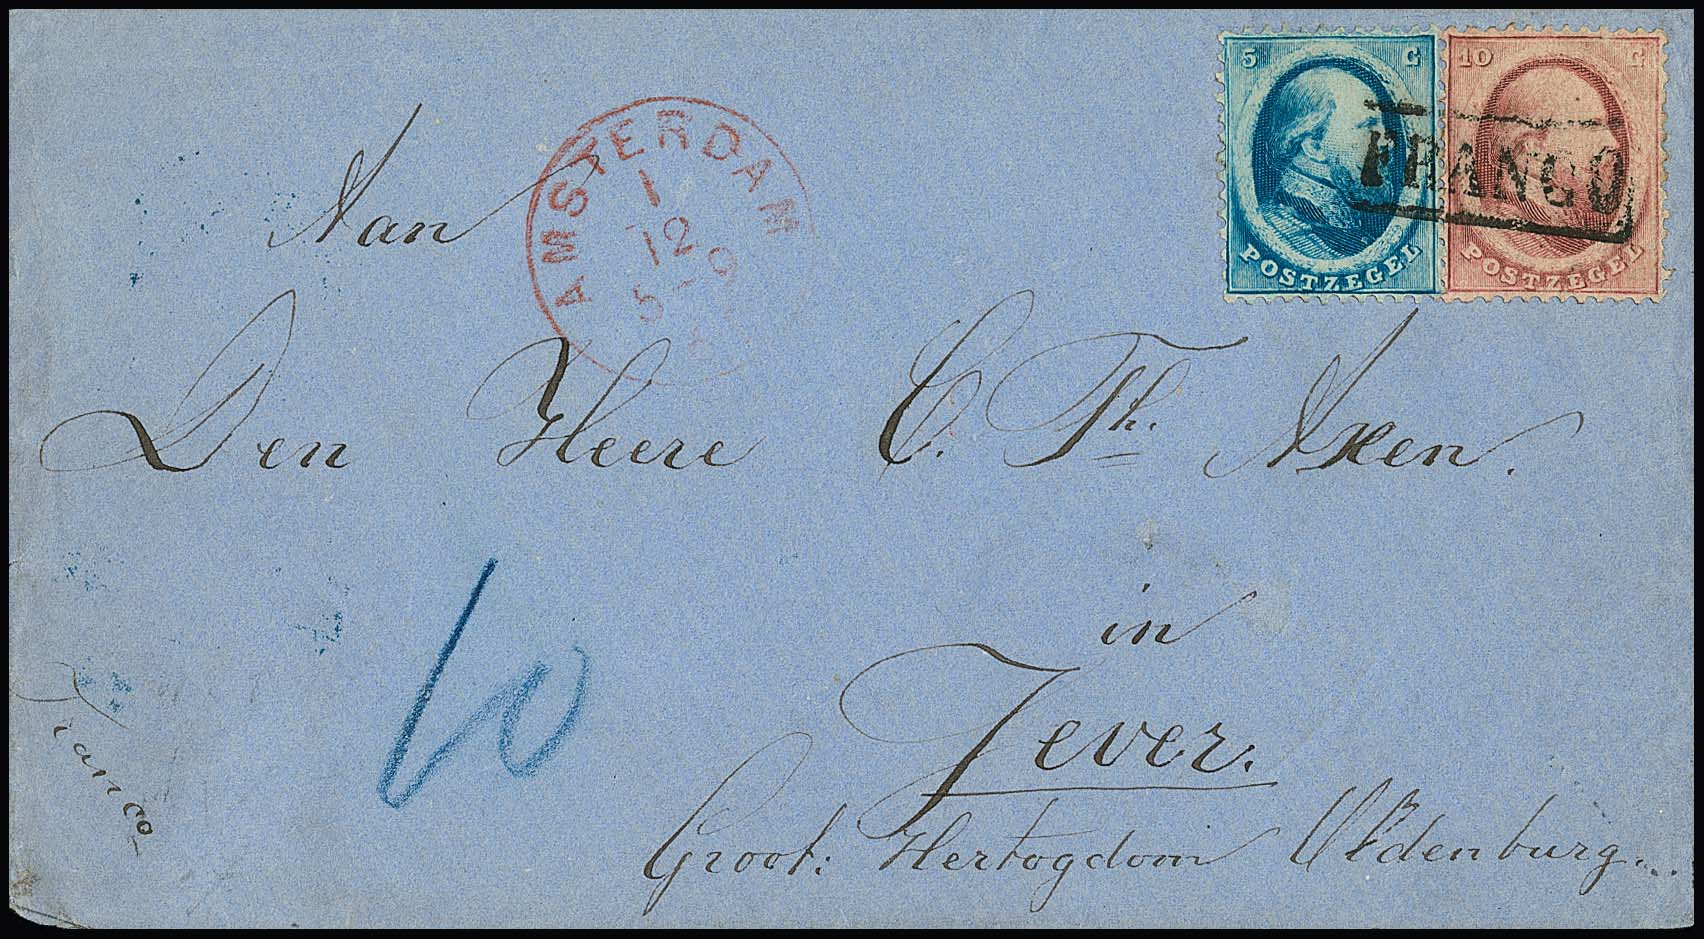 5 C
10 C
FRANCO
POSTZEGEL
POSTZEGEL
AMSTERDAM
1
12
5-9
Aan
Den Heere C. Th. Axen.
in
Jever.
Groot: Hertogdom Oldenburg...
10
Franco